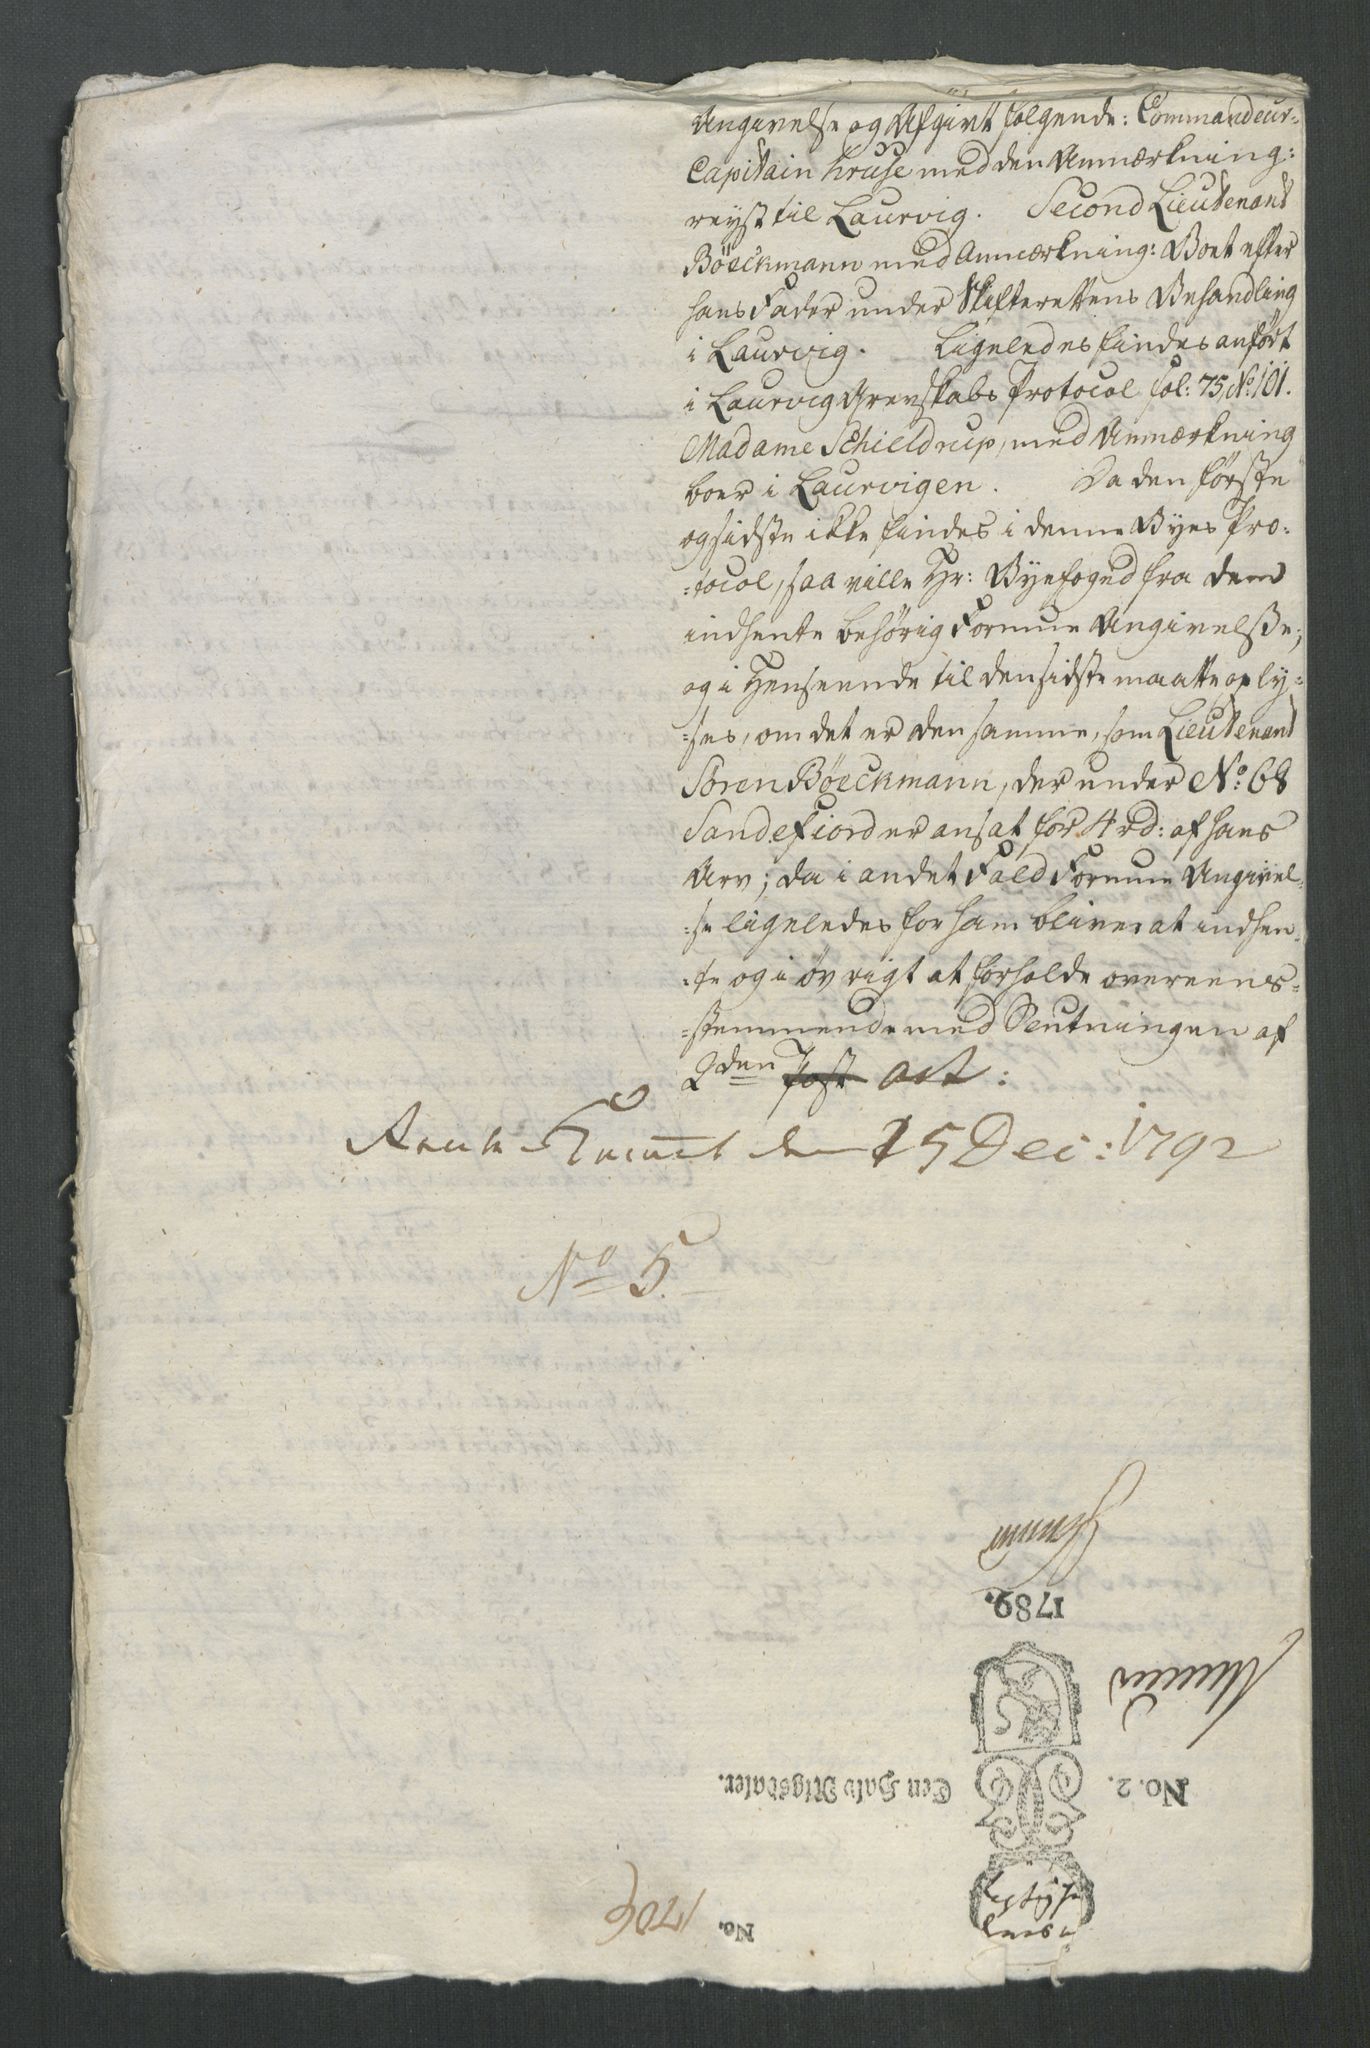 Angivelse og Afgivt følgende: Commandeur-
Capitain Kruse med den Anmærkning:
reyst til Laurvig. Second Lieutenant
Böeckmann med Anmærkning: Boet efter
hans Fader under Skifterettens Behandling
i Laurvig. Ligeledes findes anført
i Laurvig Grevskabs Protocol fol: 75, No: 101.
Madame Schieldrup, med Anmærkning
boer i Laurvigen. Da den første
og sidste ikke findes i denne Byes Pro-
-tocol, saa ville Hr: Byefoged fra dem
indhente behørig Formue Angivelsse;
og i Henseende til den sidste maatte oply-
-ses, om det er den samme, som Lieutenant
Søren Böeckmann, der under No: 68
Sandefiord er ansat for 4 rd: af hans
Arv; da i andet Fald Formue Angivel-
-se ligeledes for ham bliver at indhen-
-te og i øvrigt at forholde overeens-
-stemmende med Slutningen af
2den Post Art:
Rente Kammeret den 15 Dec: 1792
No 5.
1789.
No. 2. Een Halv Rigsdaler.
No. 1706